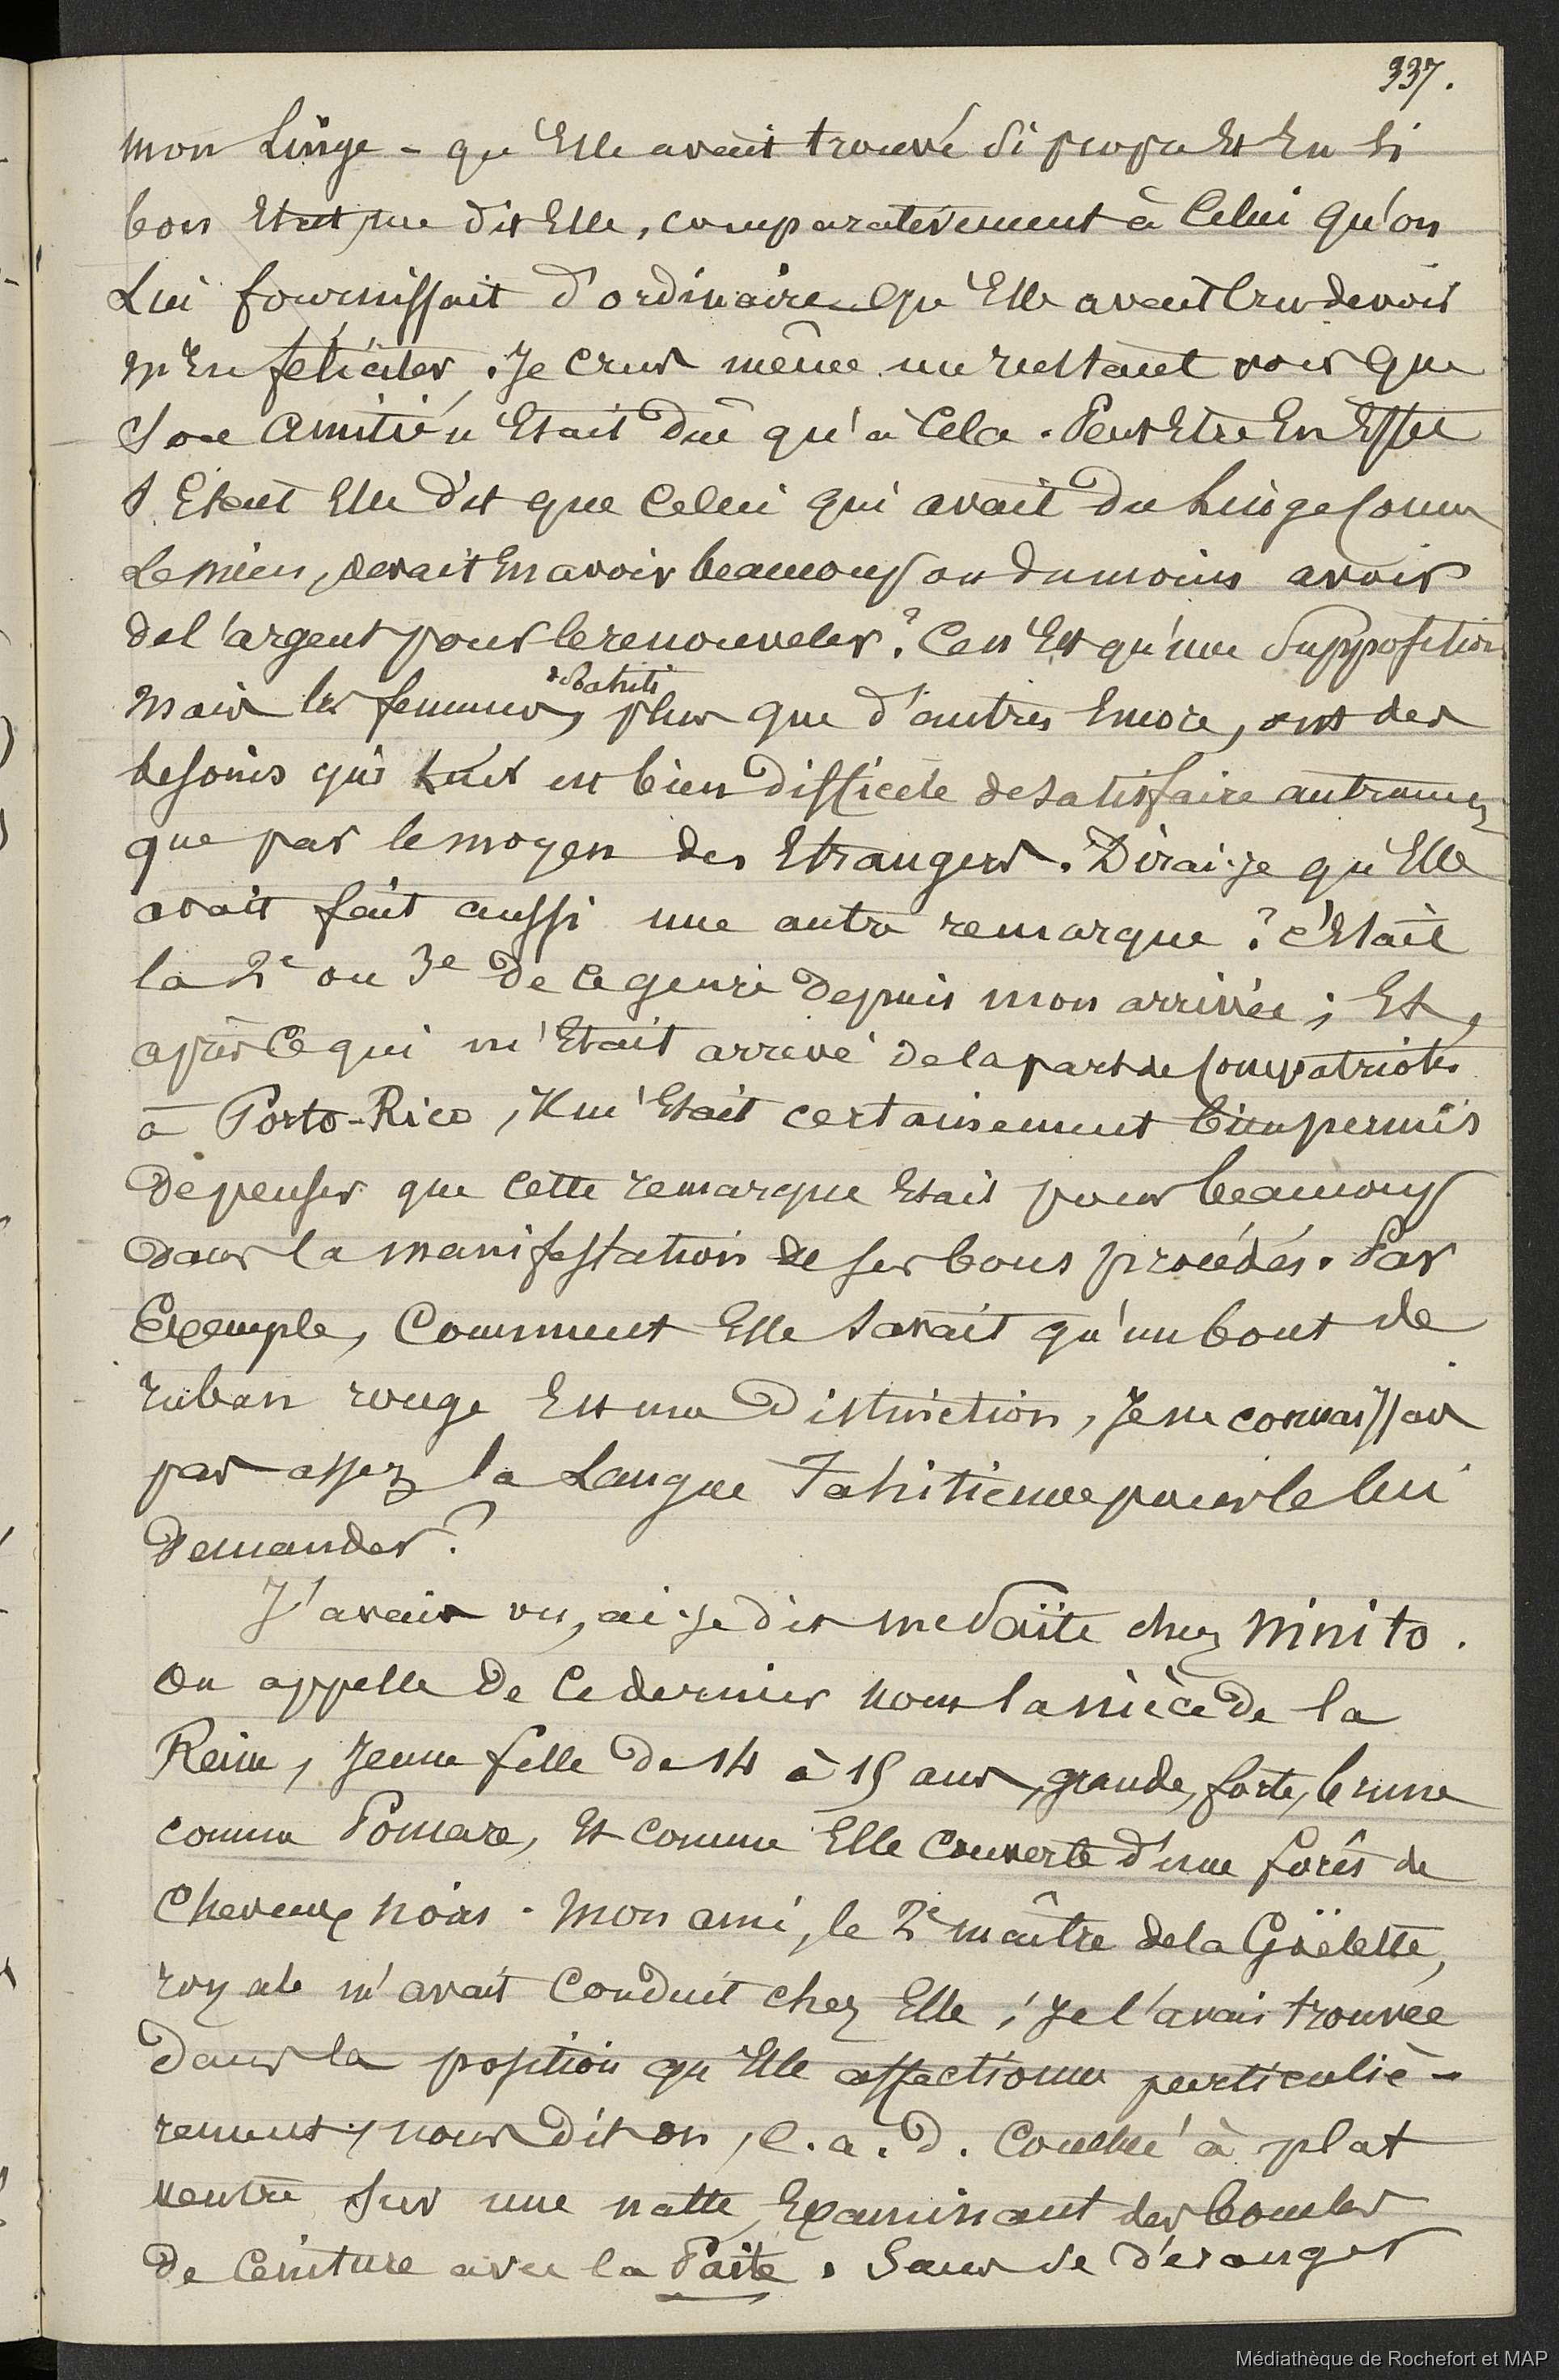 337.
mon Linge - qu'Elle avait trouvé si propre Et En si
bon Etat, me dit Elle, comparativement à Celui qu'on
Lui fournissait d'ordinaire qu'Elle avait Cru devoir
m'En féliciter. Je Crus même un instant voir que
Son Amitié n'Etait dûe qu'à Cela. Peut Etre En Effet
S'Etait Elle dit que Celui qui avait du Linge Comme
Le mien, devait En avoir beaucoup ou du moins avoir
de l'argent pour le renouveler? Ce n'Est qu'une Supposition
mais les femmes, de Tahiti plus que d'autres Encore, ont des
besoins qu'il leur est bien difficile de satisfaire autrement
que par le moyen des Etrangers. Dirai-je qu'Elle
avait fait aussi une autre remarque? c'Etait
la 2e ou 3e de Ce genre depuis mon arrivée; Et,
après Ce qui m'Etait arrivé de la part de Compatriotes
à Porto-Rico, il m'Etait certainement bien permis
de penser que Cette remarque Etait pour beaucoup
dans la manifestation de ses bons procédés. Par
Exemple, Comment Elle savait qu'un bout de
ruban rouge Est une Distinction, Je ne connaissais
pas assez la Langue Tahitienne pour le lui
demander?
J'avais vu, ai-je dit me Païte chez Ninito.
On appelle de Ce dernier nom la nièce de la
Reine, Jeune fille de 14 à 15 ans, grande, forte, brune
comme Pomare, Et comme Elle Couverte d'une forêt de
Cheveux noirs. Mon ami, le 2e maître de la Goëlette,
royale m'avait Conduit chez Elle; Je l'avais trouvée
dans la position qu'Elle affectionne particuliè-
rement, nous dit on, c.a.d. Couché à plat
ventre sur une natte, Examinant des boucles
de Ceinture avec la Païte. Sans se déranger
Médiathèque de Rochefort et MAP